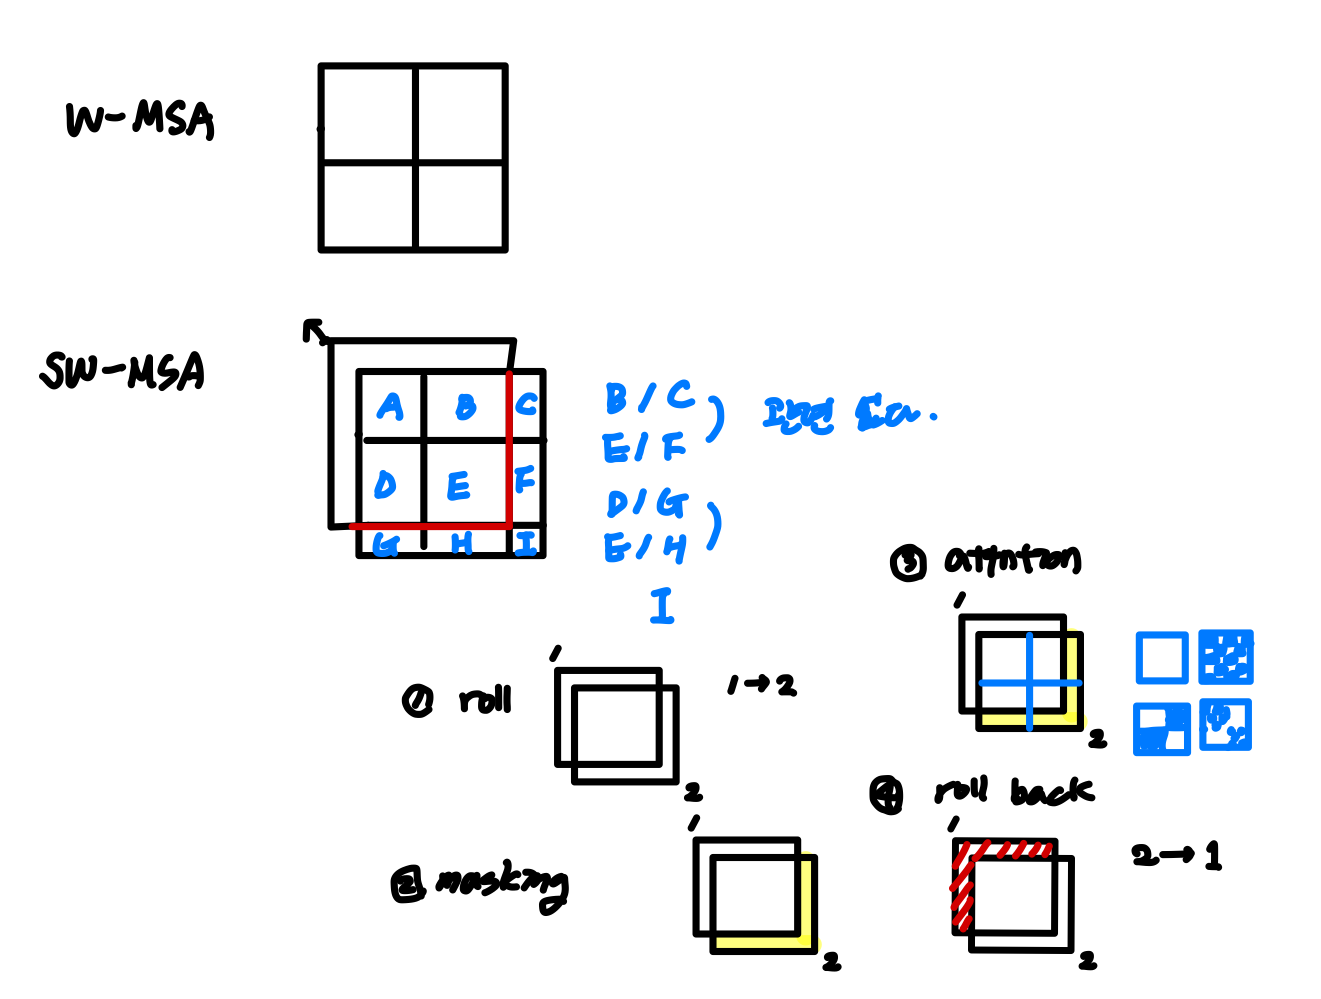 W-MSA
SW-MSA
A B C
D E F
G H I
B/C
E/F
D/G
E/H
I
① roll
1
2
1→2
② masking
1
2
③ attention
1
2
④ roll back
1
2
2→1